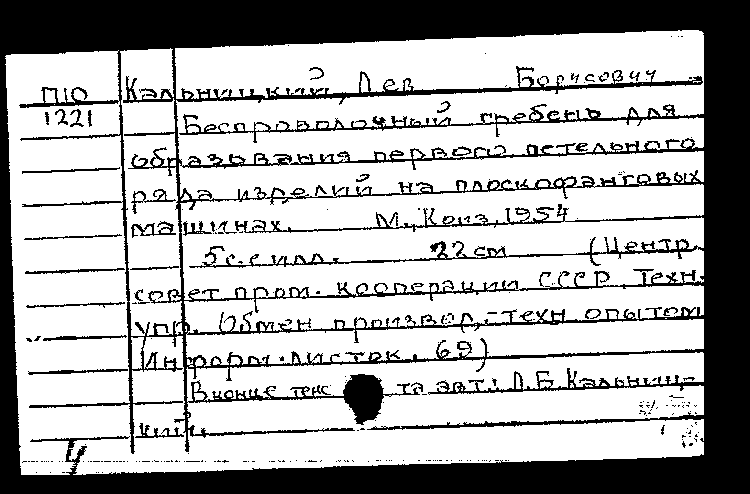 П10 Кальницкий, Лев Борисович
1221 Беспроволочный гребень для
образования первого петельного
ряда изделий на плоскофанговых
машинах. М., Коиз, 1954
5 с. с илл. 22 см (Центр.
совет пром. кооперации СССР. Техн.
упр. Обмен производ.-техн опытом
Информ. листок. 69)
В конце текс та авт.: Л.Б. Кальниц-
кий.